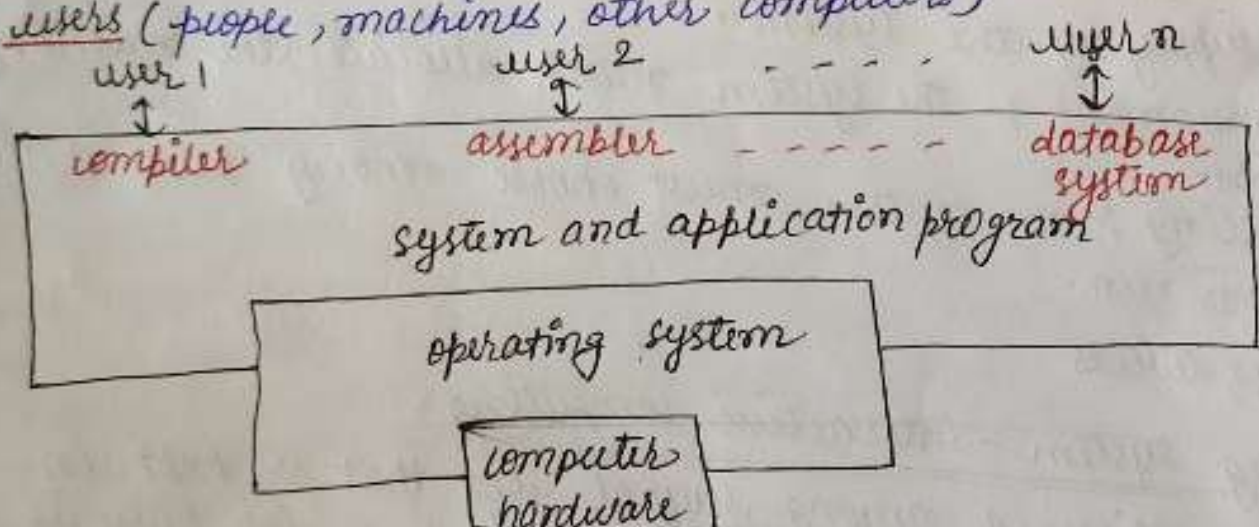 users (people, machines, other computers)
user 1 user 2 - - - - user n
compiler assembler - - - - - database
system
system and application program
operating system
computer
hardware